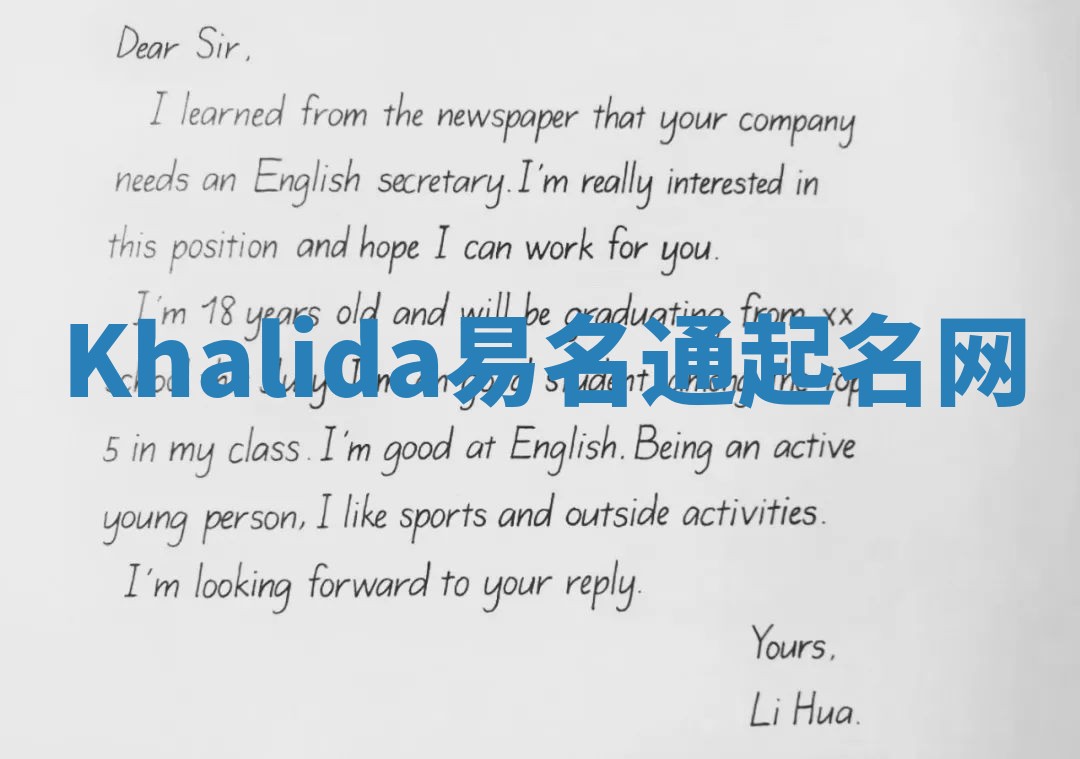 Dear Sir,
I learned from the newspaper that your company
needs an English secretary. I'm really interested in
this position and hope I can work for you.
I'm 18 years old and will be graduating from xx
Khalida易名通起名网
school this July. I'm a good student among the top
5 in my class. I'm good at English. Being an active
young person, I like sports and outside activities.
I'm looking forward to your reply.
Yours,
Li Hua.